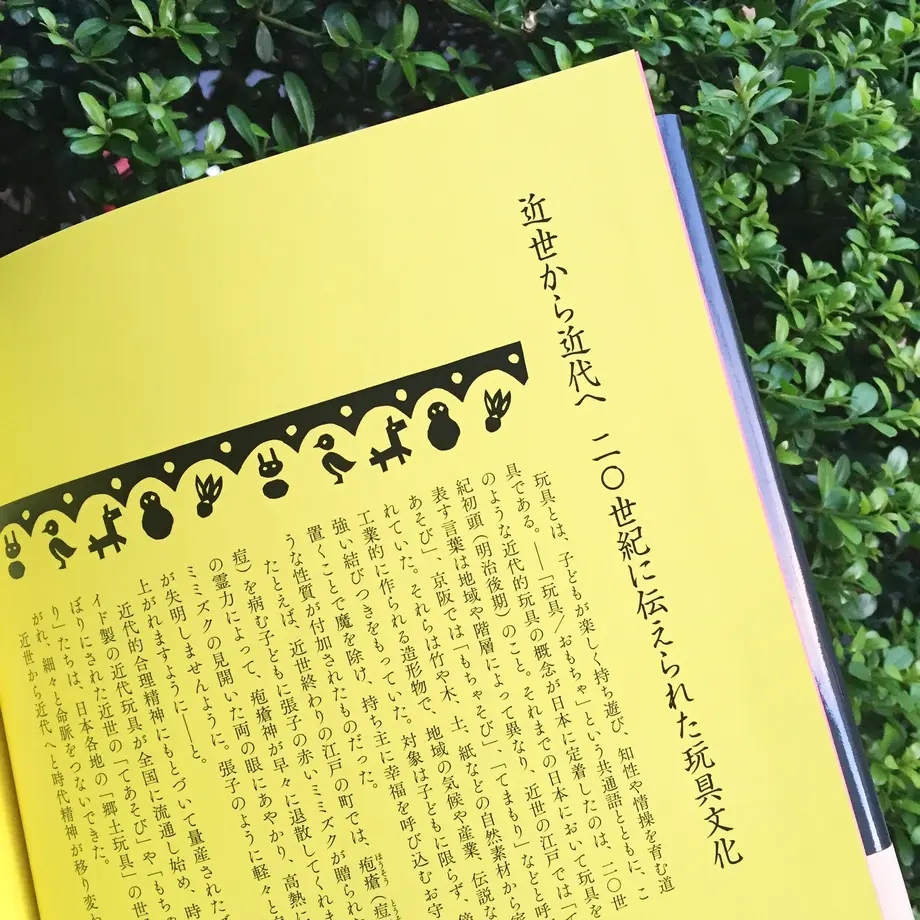 近世から近代へ 二〇世紀に伝えられた玩具文化
玩具とは、子どもが楽しく持ち遊び、知性や情操を育む道
具である。――「玩具/おもちゃ」という共通語とともに、こ
のような近代的玩具の概念が日本に定着したのは、二〇世
紀初頭(明治後期)のこと。それまでの日本において玩具を
表す言葉は地域や階層によって異なり、近世の江戸では「て
あそび」、京阪では「もちゃそび」、「てまもり」などと呼
れていた。それらは竹や木、土、紙などの自然素材から
工業的に作られる造形物で、地域の気候や産業、伝説な
強い結びつきをもっていた。対象は子どもに限らず、
置くことで魔を除け、持ち主に幸福を呼び込むお守
うな性質が付加されたものだった。
たとえば、近世終わりの江戸の町では、疱瘡(ほうそう)(痘
痘)を病む子どもに張子の赤いミミズクが贈られ
の霊力によって、疱瘡神が早々に退散してくれま
ミミズクの見開いた両の眼にあやかり、高熱に
が失明しませんように。張子のように軽々と
上がれますように――と。
近代的合理精神にもとづいて量産された
イド製の近代玩具が全国に流通し始め、時
ばりにされた近世の「てあそび」や「もち
り」たちは、日本各地の「郷土玩具」の世
がれ、細々と命脈をつないできた。
近世から近代へと時代精神が移り変わ